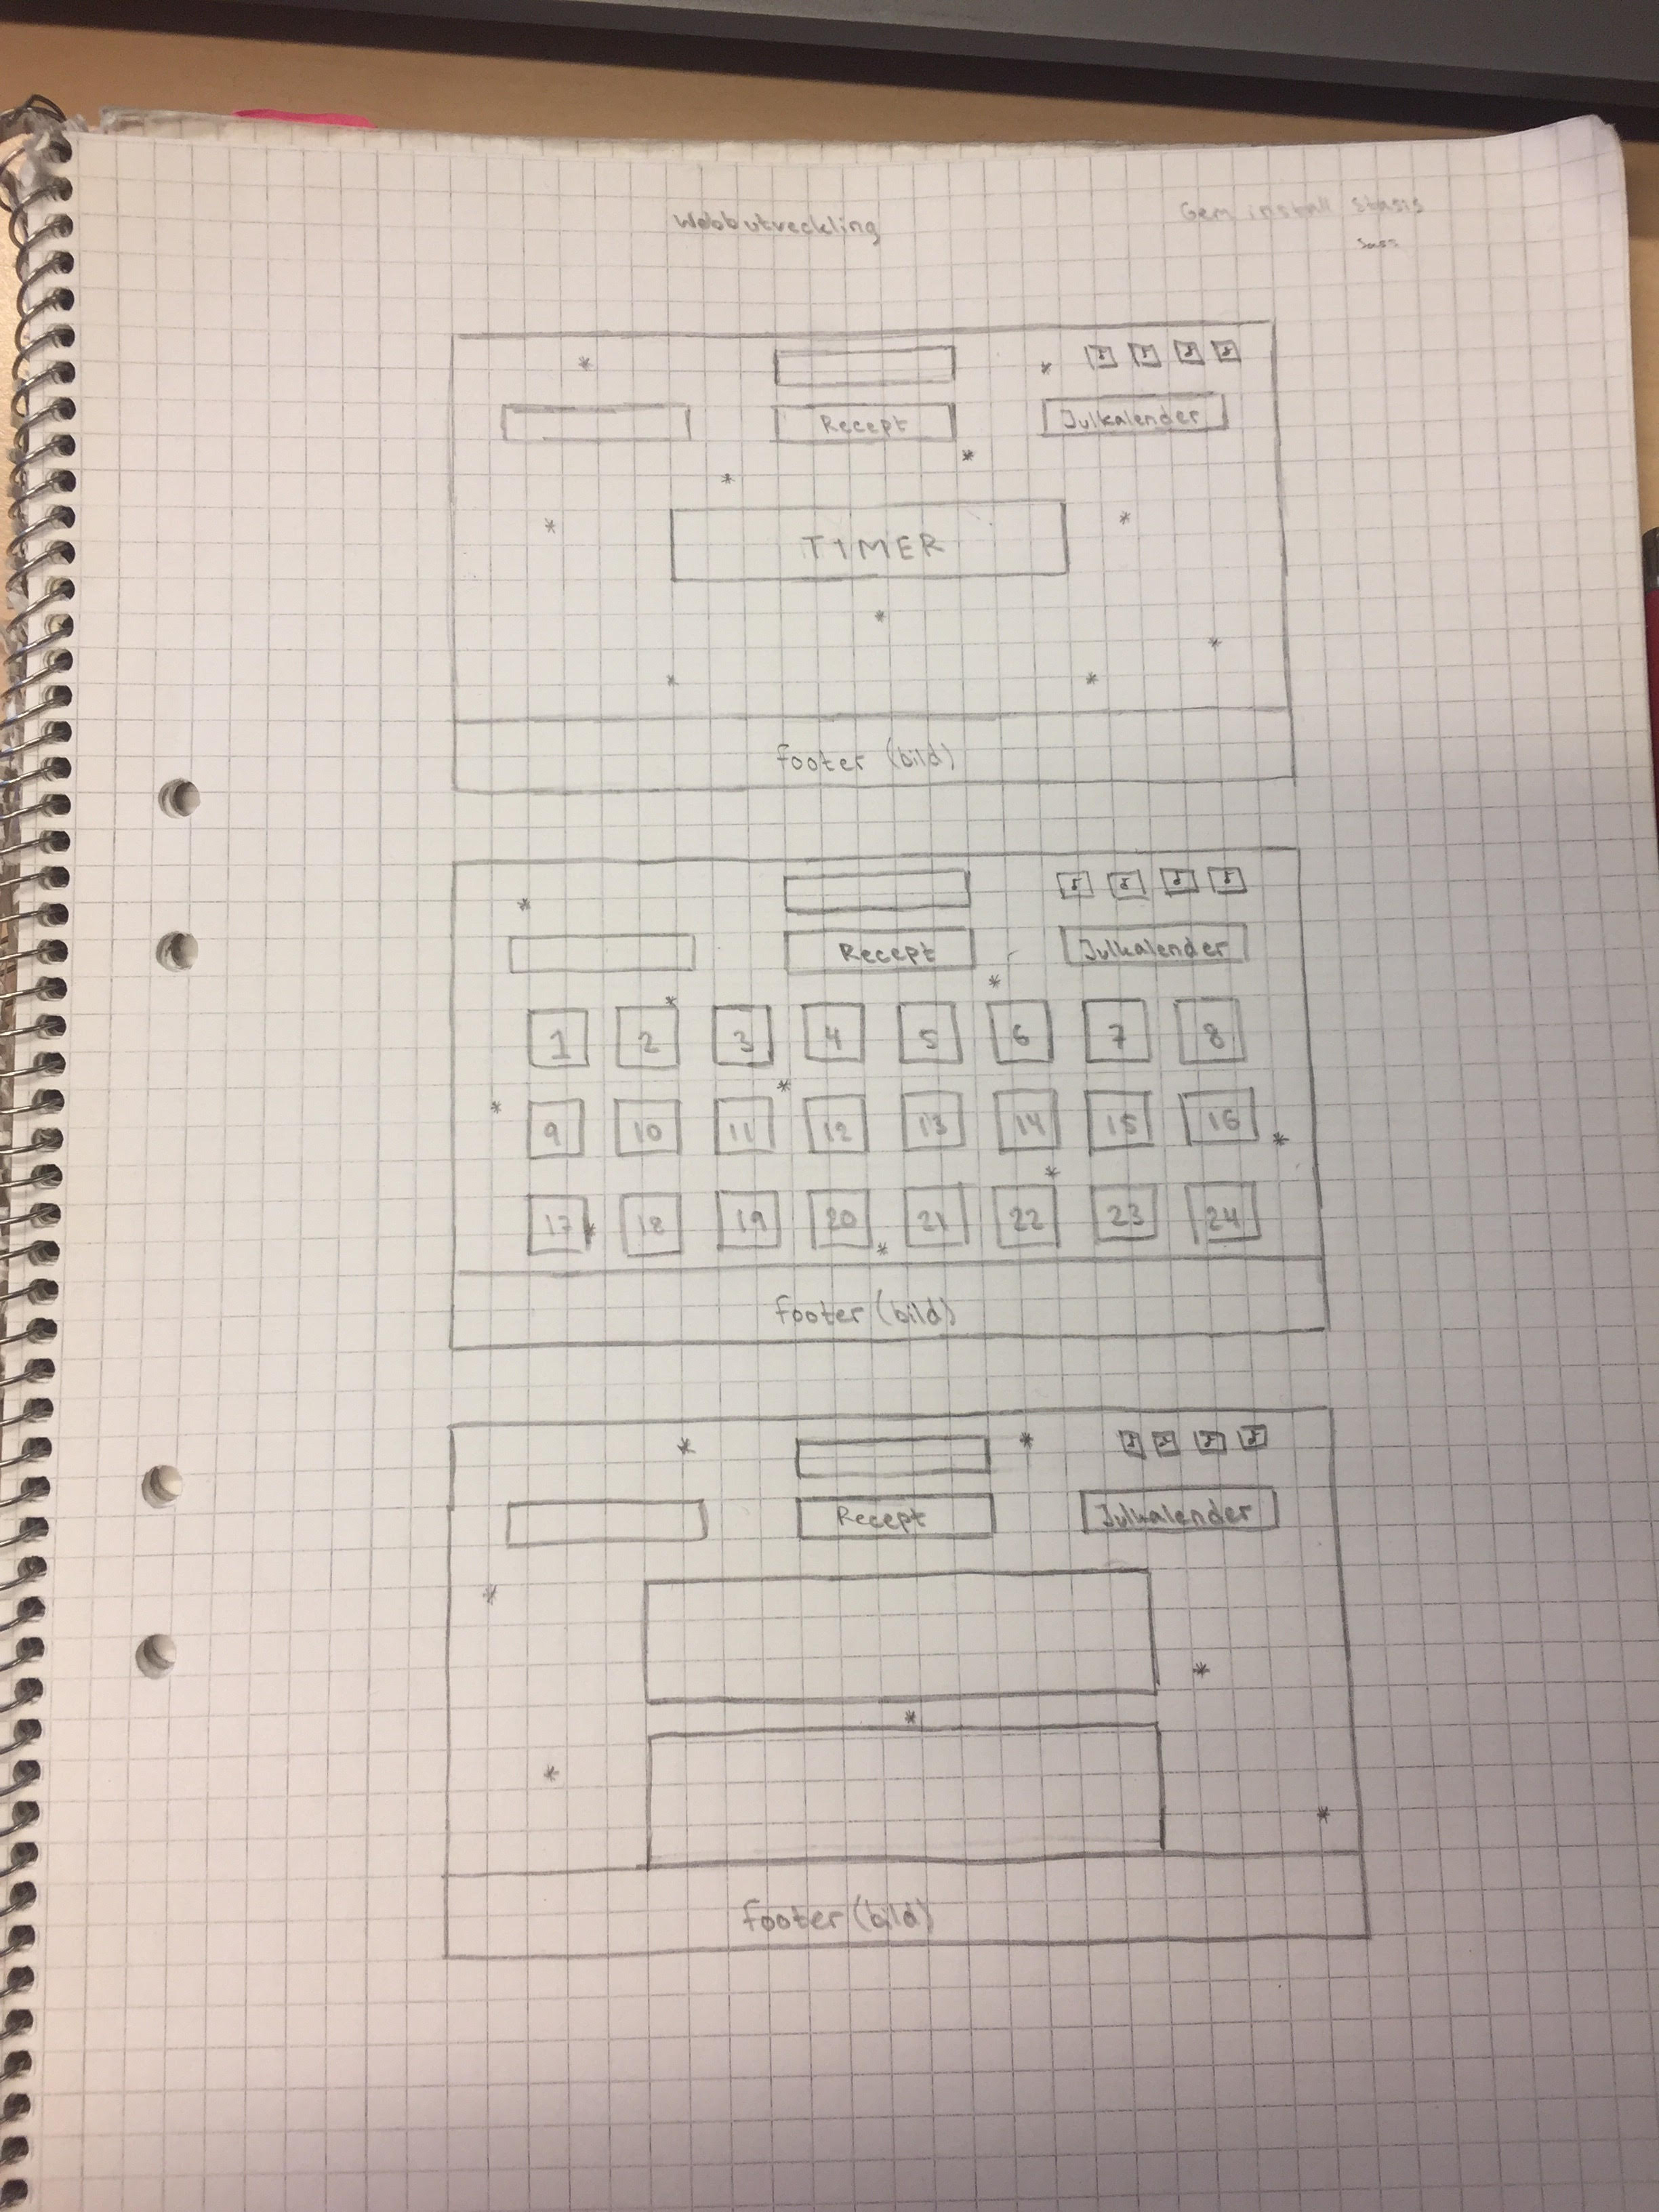 Webbutveckling
Gem install stasis
sass
*
*
Recept
Julkalender
*
*
*
TIMER
*
*
*
*
*
footer (bild)
*
Recept
Julkalender
*
*
1 2 3 4 5 6 7 8
*
*
9 10 11 12 13 14 15 16
*
*
17 18 19 20 21 22 23 24
*
*
footer (bild)
*
*
Recept
Julkalender
*
*
*
*
*
footer (bild)